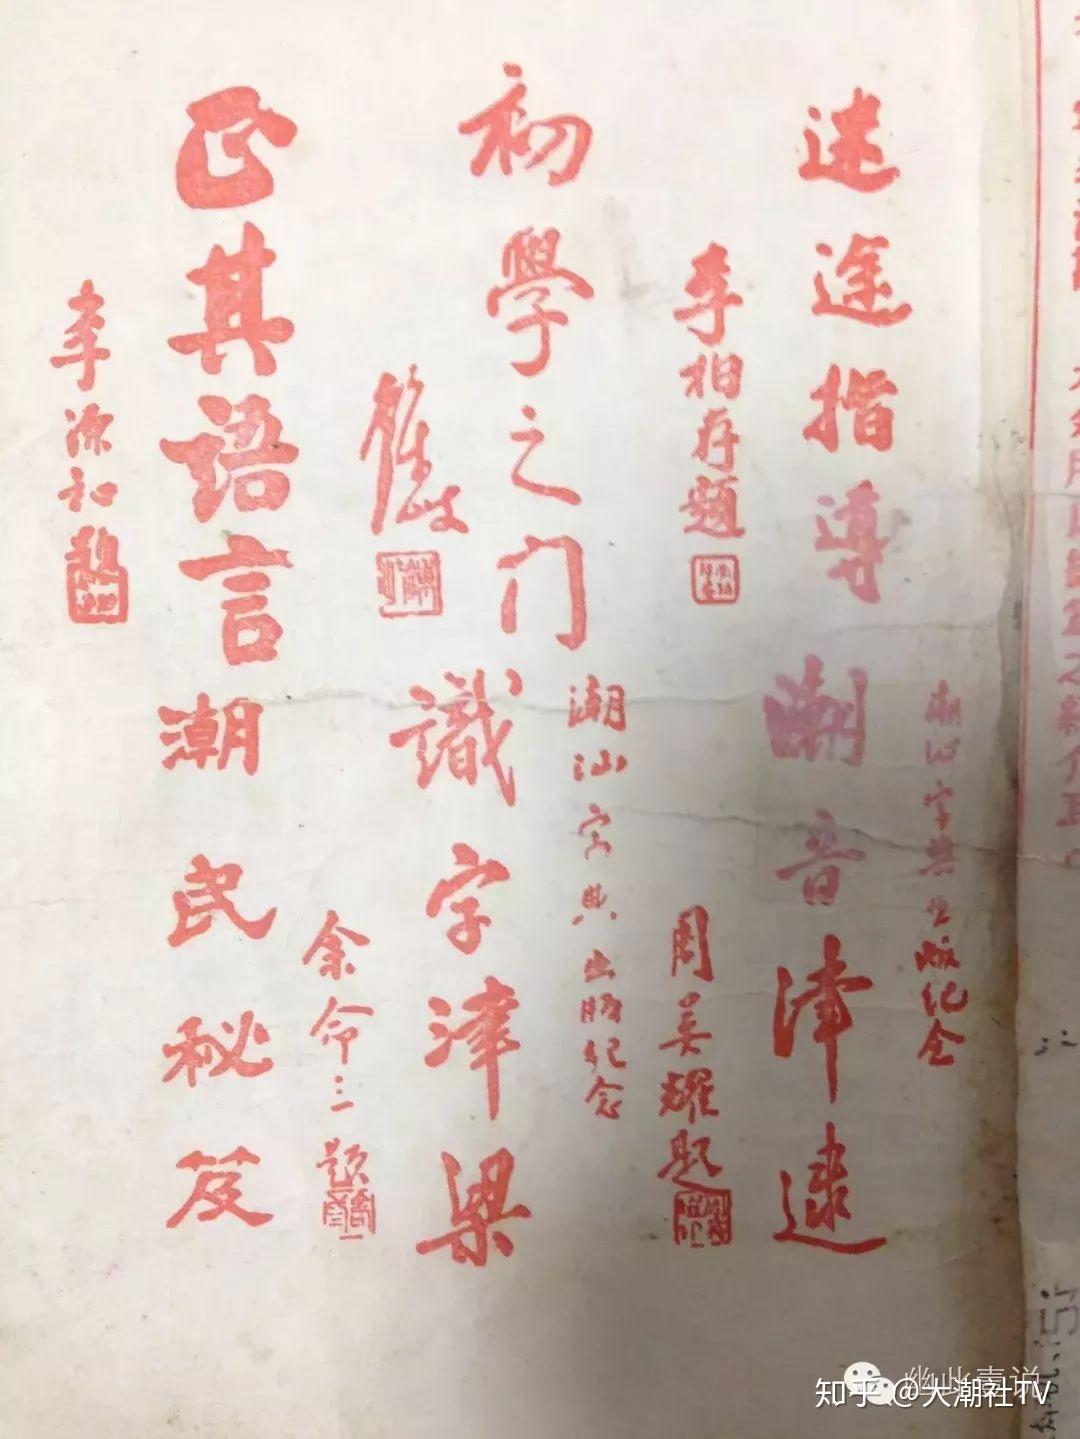 迷途指導
李柏存題
初學之门
正其語言
李源和題
潮汕字典出版纪念
潮音津逮
周美耀题
潮汕字典出版纪念
識字津梁
余命三题
潮民秘笈
幽此壹说
知乎 @大潮社TV